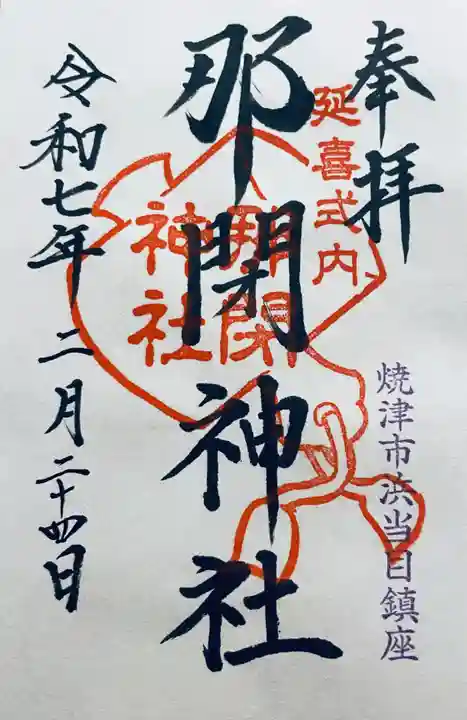 奉拝
延喜式内
焼津市浜当目鎮座
那閉神社
那閉
神社
令和七年 二月二十四日